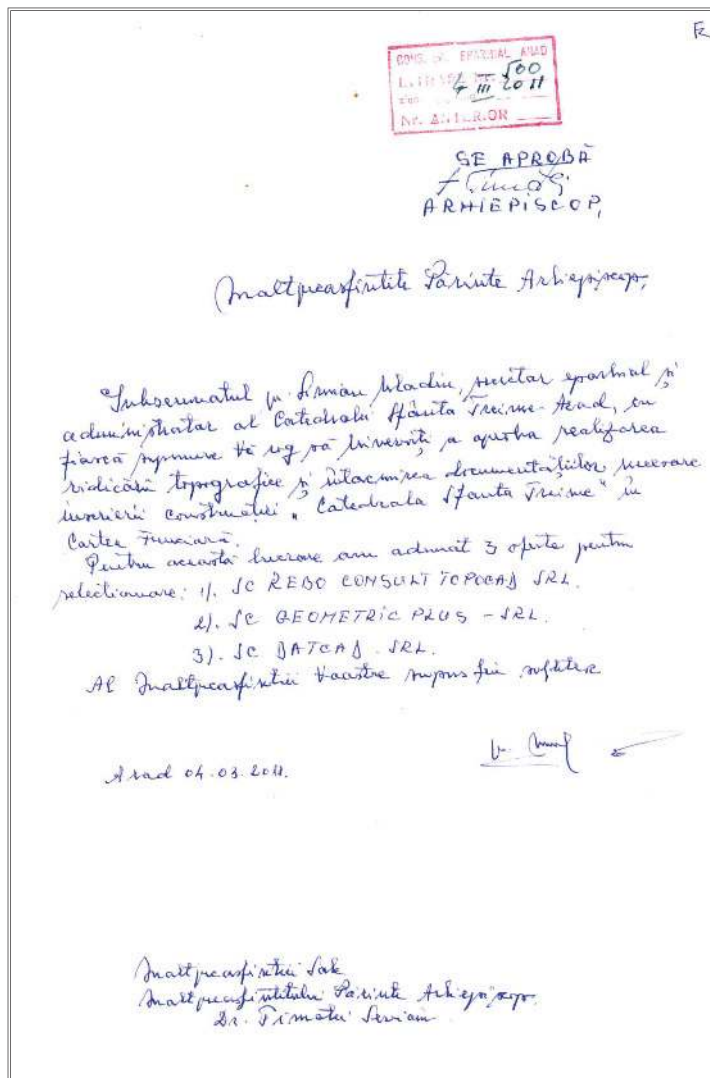 CONS. EPARHIAL ARAD
500
4 III 2011
Nr. ANTERIOR
SE APROBĂ
+ Timotei
ARHIEPISCOP,
Inaltpreasfintite Părinte Arhiepiscop,
Subsemnatul pr. Sirmian Vladiu, secretar eparhial și
administrator al Catedralei Sfânta Treime - Arad, cu
fiască supunere Vă rog să binevoiți a aproba realizarea
ridicării topografice și întocmirea documentațiilor necesare
înscrierii construcției „Catedrala Sfanta Treime" în
Cartea Funciară.
Pentru această lucrare am adunat 3 oferte pentru
selectionare: 1). SC REBO CONSULT TOPOCAD SRL.
2). SC GEOMETRIC PLUS - SRL.
3). SC DATCAD SRL.
Al Inaltpreasfintiei Voastre supus fiu sufletesc
Arad 04.03.2011.
Inaltpreasfintiei Sale
Inaltpreasfintitului Părinte Arhiepiscop
Dr. Timotei Seviciu